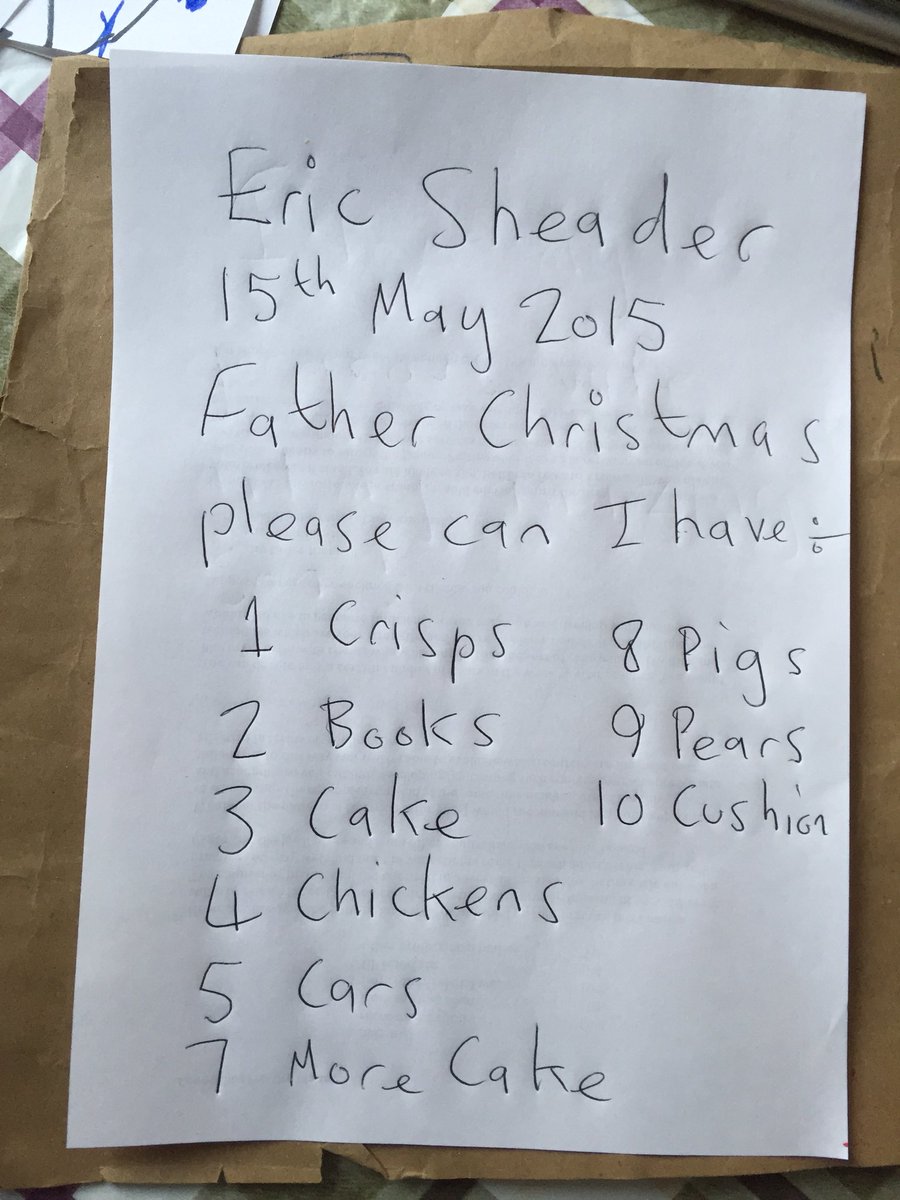 Eric Sheader
15th May 2015
Father Christmas
please can I have ÷
1 Crisps
2 Books
3 Cake
4 Chickens
5 Cars
7 More Cake
8 Pigs
9 Pears
10 Cushion